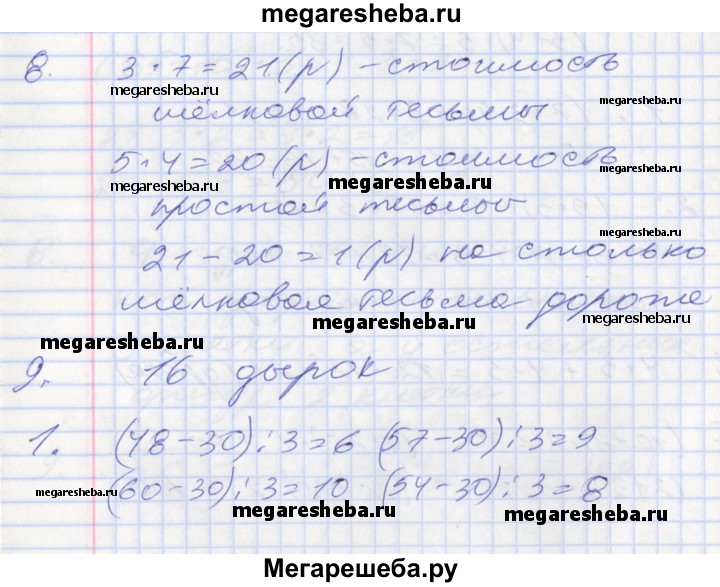 megaresheba.ru
8. 3 · 7 = 21 (р) – стоимость
megaresheba.ru
megaresheba.ru
шёлковой тесьмы
5 · 4 = 20 (р) – стоимость
megaresheba.ru
megaresheba.ru
megaresheba.ru
простой тесьмы
21 – 20 = 1 (р) на столько
шёлковая тесьма дороже
megaresheba.ru
megaresheba.ru
megaresheba.ru
9. 16 дырок
1. (48 – 30) : 3 = 6 (57 – 30) : 3 = 9
(60 – 30) : 3 = 10 (54 – 30) : 3 = 8
megaresheba.ru
megaresheba.ru
megaresheba.ru
Мегарешеба.ру